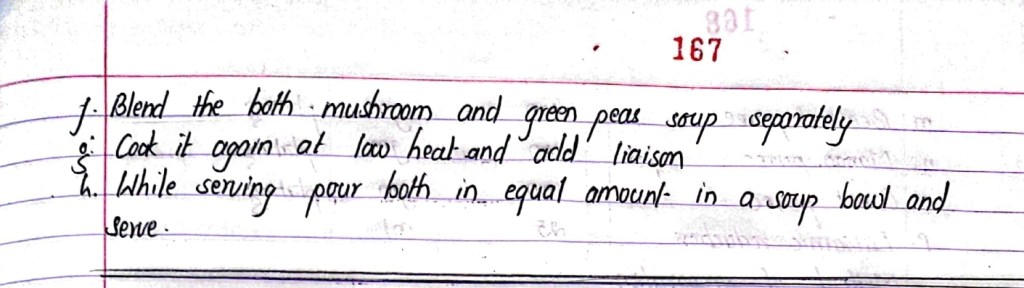 167
f. Blend the both mushroom and green peas soup separately
g. Cook it again at low heat and add liaison
h. While serving pour both in equal amount in a soup bowl and
serve.